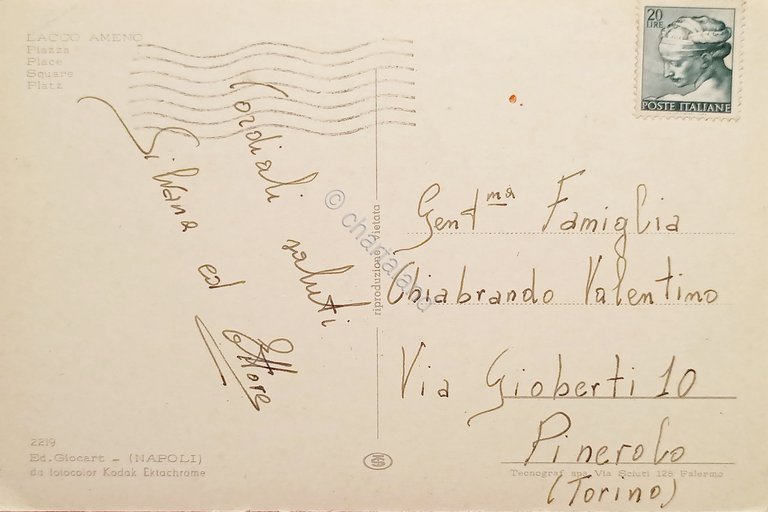 LACCO AMENO
Piazza
Place
Square
Platz
20
LIRE
POSTE ITALIANE
Cordiali saluti
Silvana ed Ettore
© chartaland
riproduzione vietata
Gentma Famiglia
Chiabrando Valentino
Via Gioberti 10
Pinerolo
(Torino)
2219
Ed. Giocart - (NAPOLI)
da fotocolor Kodak Ektachrome
Tecnograf spa Via Sciuti 128 Palermo